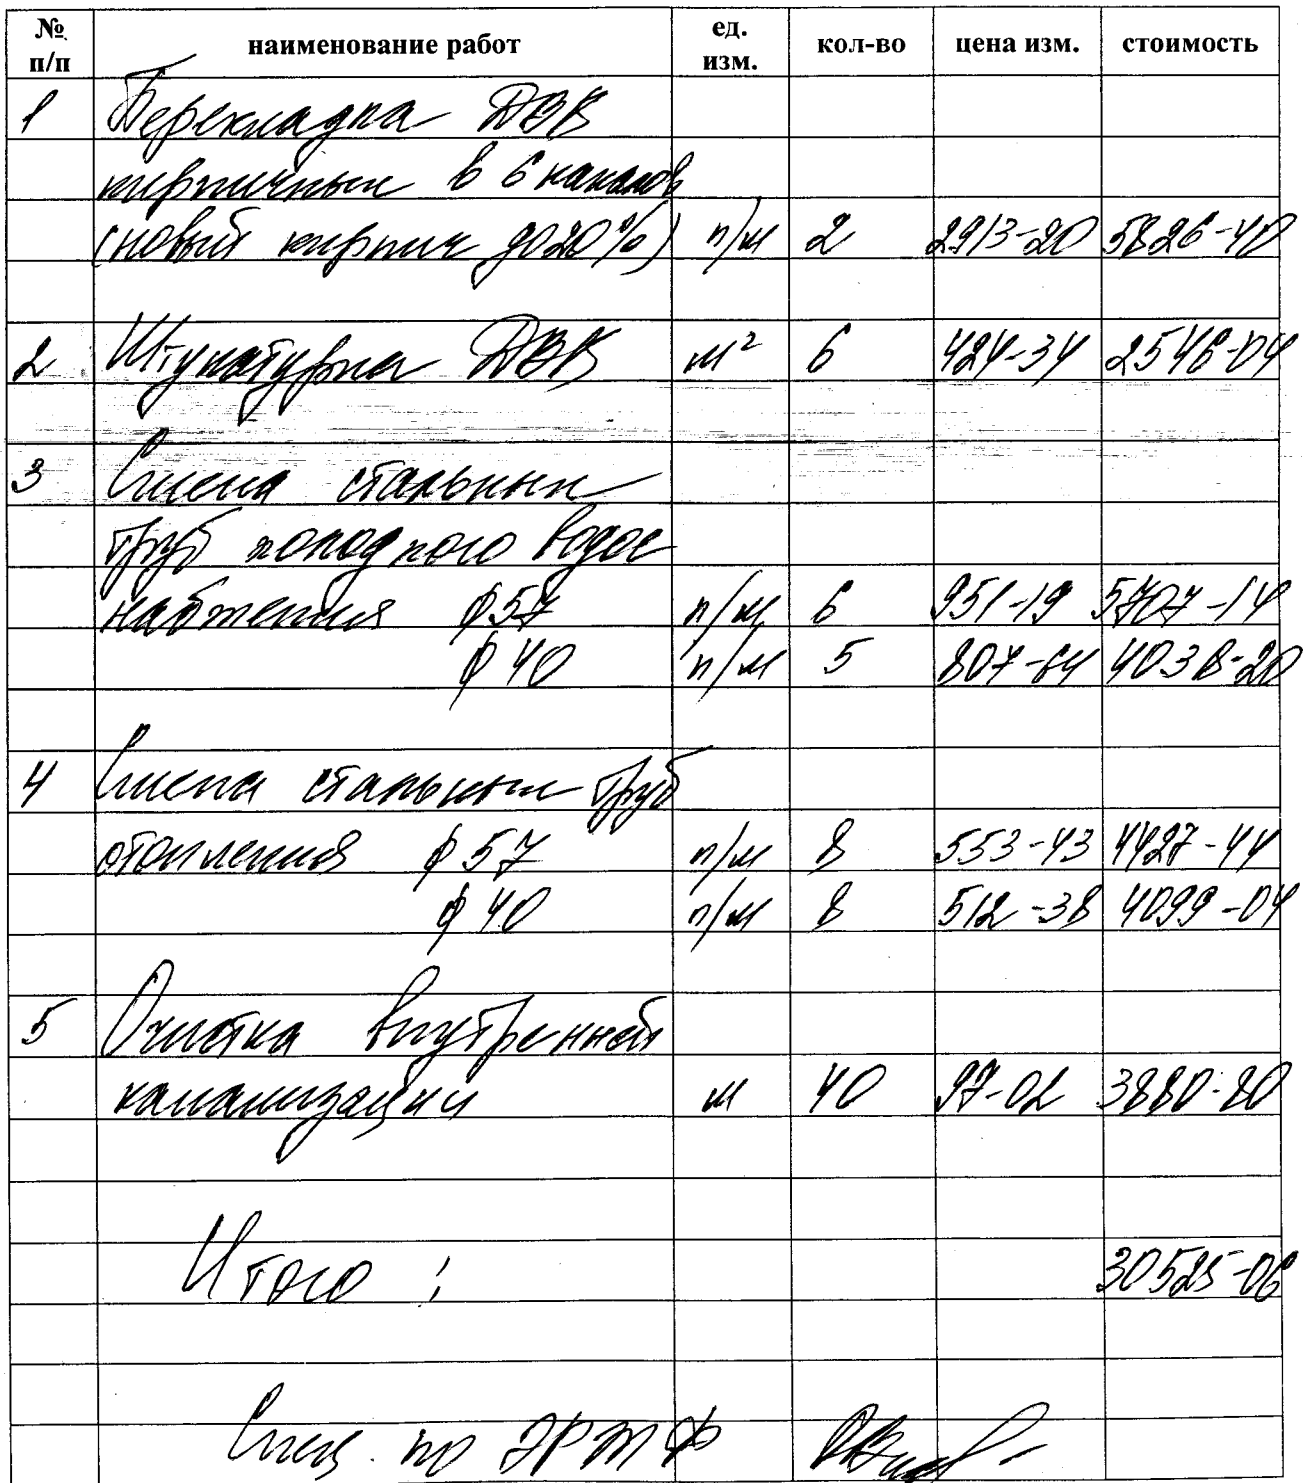 № п/п наименование работ ед. изм. кол-во цена изм. стоимость
1 Перекладка ДВК
кирпичных в 6 каналов
(новый кирпич до 20%) п/м 2 2913-20 5826-40
2 Штукатурка ДВК м² 6 424-34 2546-04
3 Смена стальных
труб холодного водос
набжения ф 57 п/м 6 951-19 5707-14
ф 40 п/м 5 807-64 4038-20
4 Смена стальных труб
отопления ф 57 п/м 8 553-43 4427-44
ф 40 п/м 8 512-38 4099-04
5 Очистка внутренней
канализации м 40 97-02 3880-80
Итого : 30525-06
Спец. по ЭРЖФ